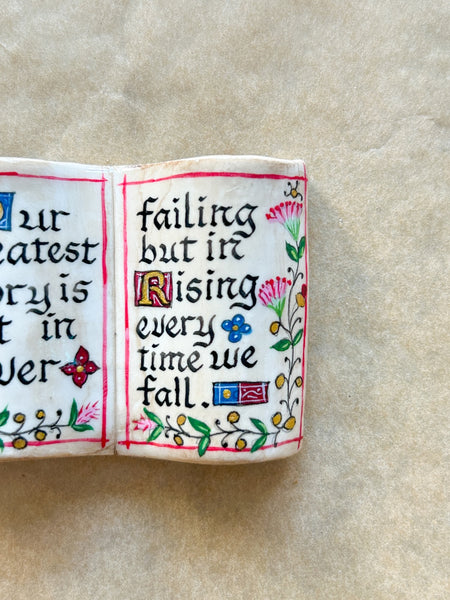 Our
eatest
ory is
t in
ver
failing
but in
Rising
every
time we
fall.